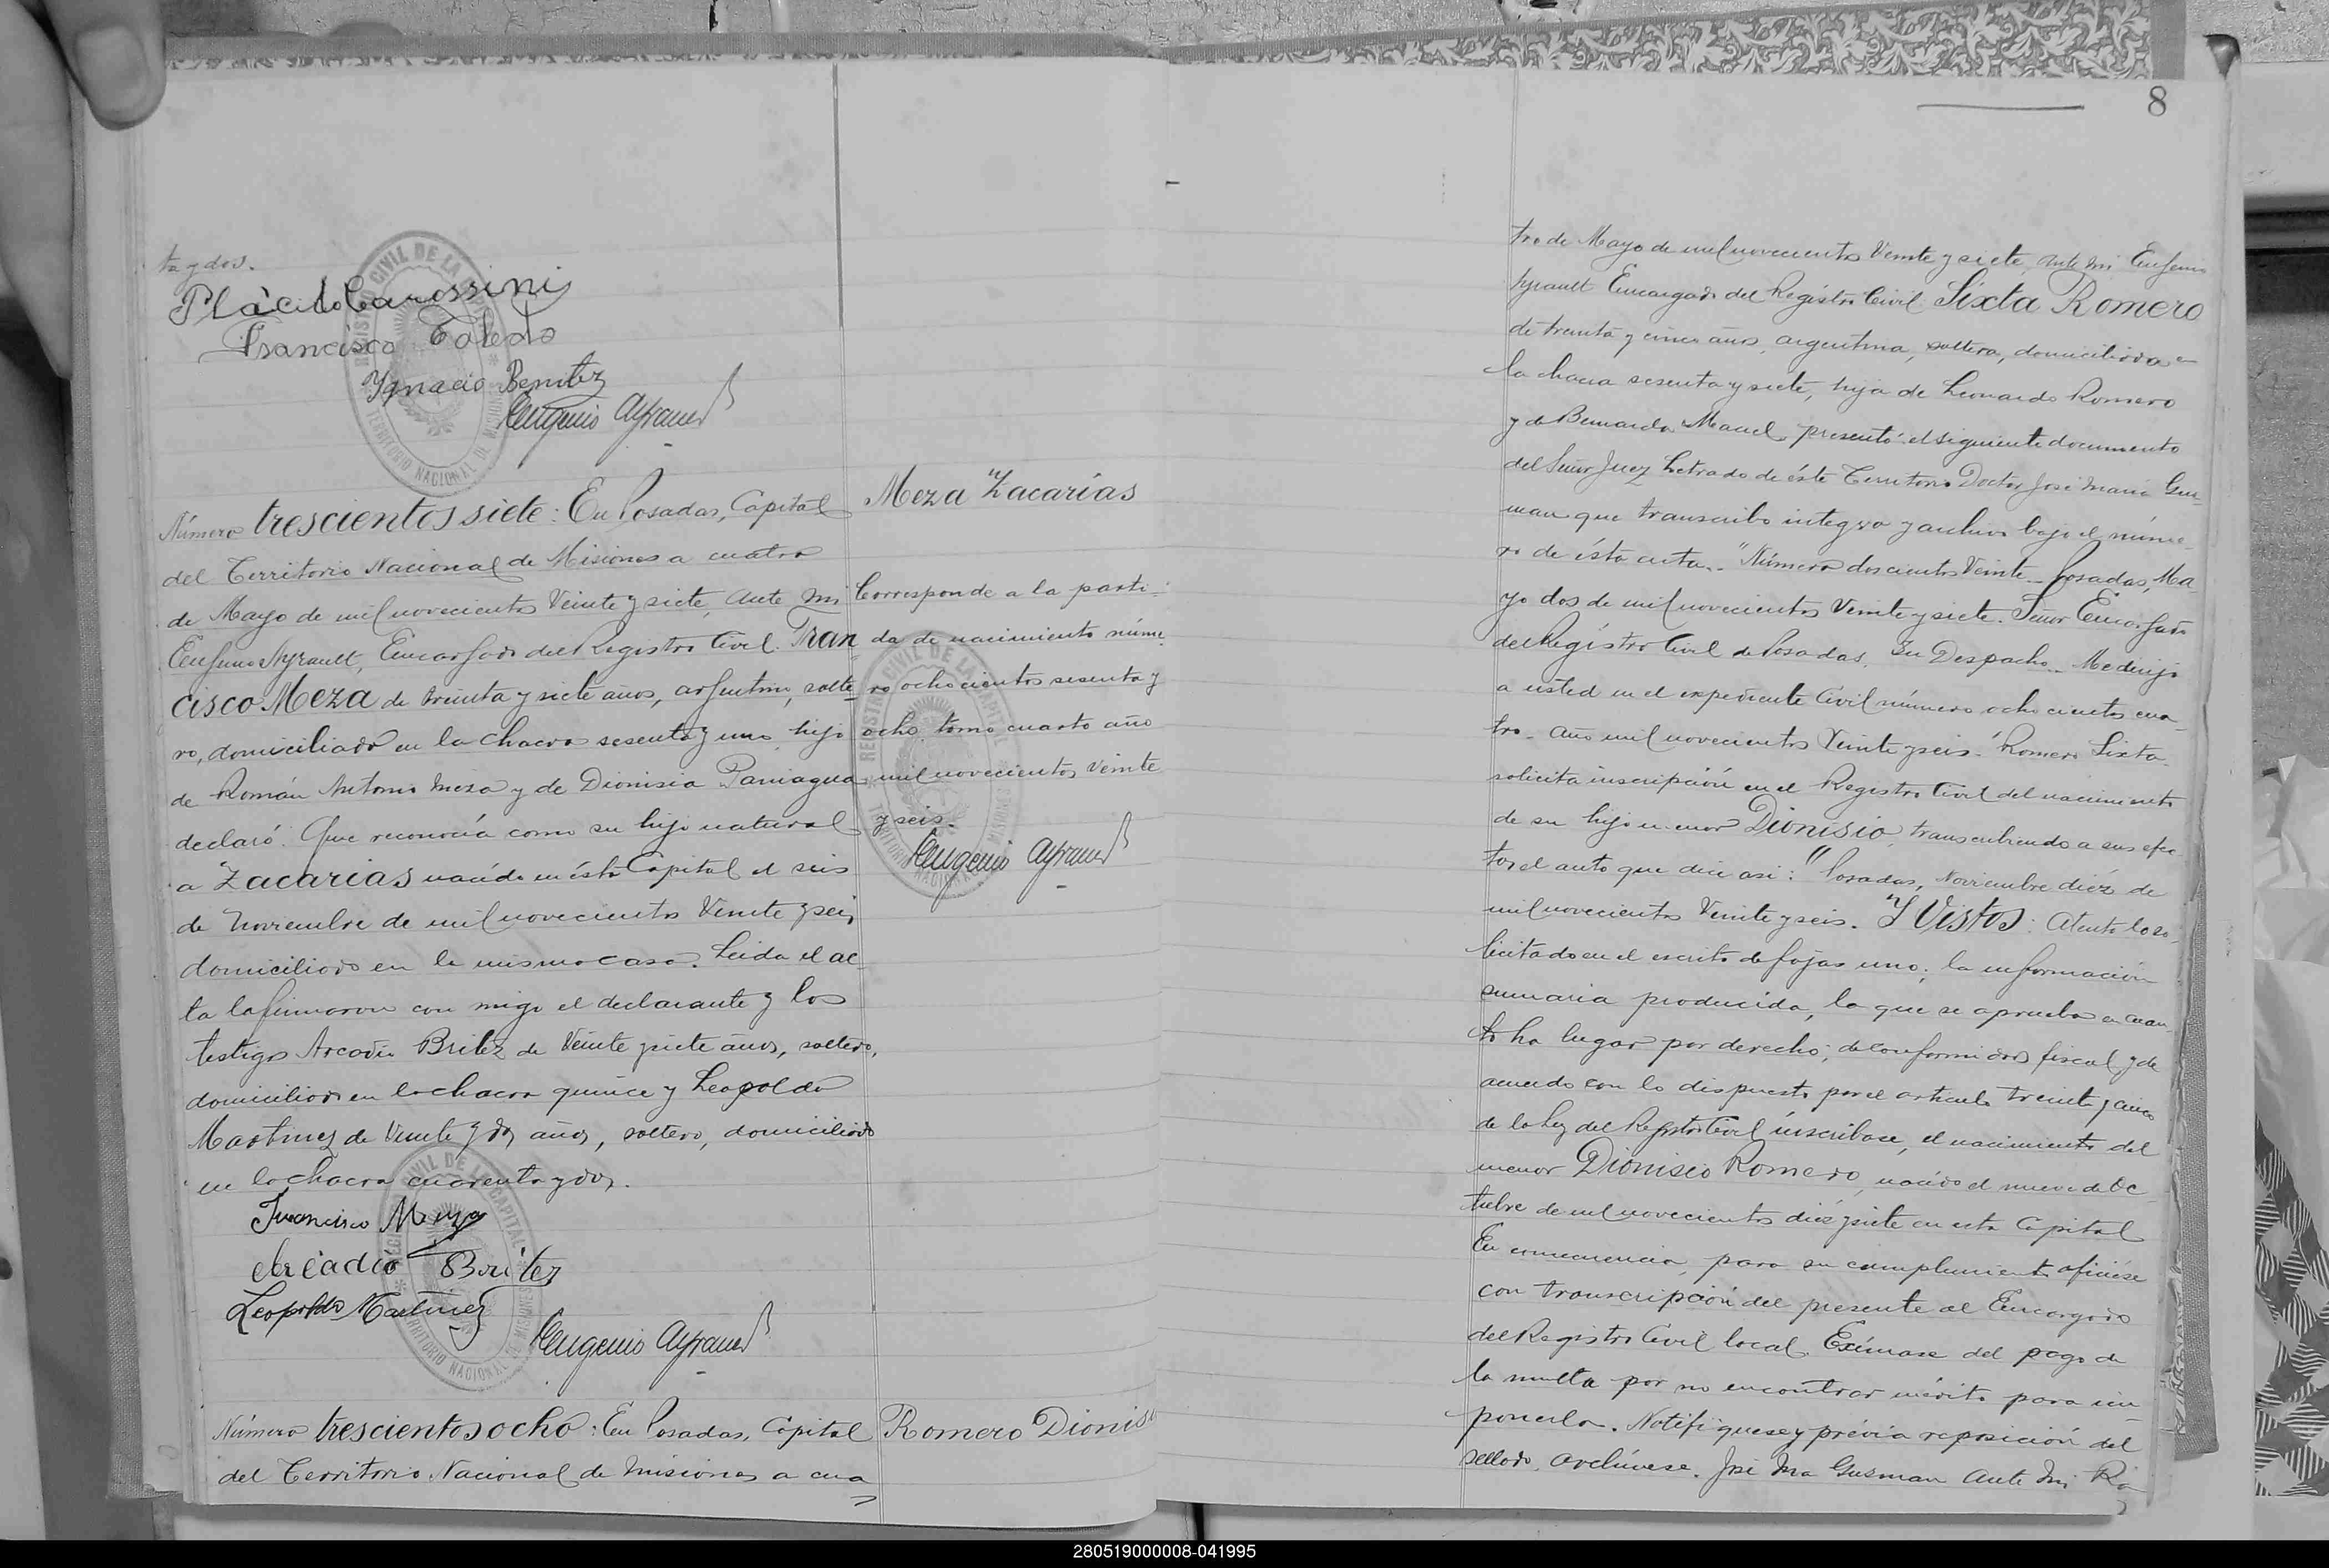 ta y dos.
Plácido Carossini
Francisco Toledo
Ygnacio Benitez
Eugenio Ayrault
Número trescientos siete: En Posadas, Capital
del Territorio Nacional de Misiones a cuatro
de Mayo de mil novecientos Veinte y siete, Ante mi
Eugenio Ayrault, Encargado del Registro Civil. Fran
cisco Meza de treinta y siete años, argentino, solte
ro, domiciliado en la chacra sesenta y uno, hijo
de Román Antonio Meza y de Dionisia Paniagua
declaró: Que reconocía como su hijo natural
a Zacarias nacido en ésta Capital el seis
de Noviembre de mil novecientos Veinte y seis,
domiciliado en la misma casa. Leida el ac-
ta la firmaron con migo el declarante y los
testigos Arcadio Britez de Veinte y siete años, soltero,
domiciliado en la chacra quince y Leopoldo
Martinez de Veinte y dos años, soltero, domiciliado
en la chacra cuarenta y dos.
Francisco Meza
Arcadio Britez
Leopoldo Martinez
Eugenio Ayrault
Número trescientos ocho: En Posadas, Capital
del Territorio Nacional de Misiones a cua
Meza Zacarías
Corresponde a la parti-
da de nacimiento núme
ro ochocientos sesenta y
ocho tomo cuarto año
mil novecientos veinte
y seis.
Eugenio Ayrault
Romero Dionis
REGISTRO CIVIL DE LA CAPITAL
TERRITORIO NACIONAL DE MISIONES
8
tro de Mayo de mil novecientos Veinte y siete, ante mi Eugenio
Ayrault Encargado del Registro Civil Sixta Romero
de treinta y cinco años, argentina, soltera, domiciliada en
la chacra sesenta y siete, hija de Leonardo Romero
y de Bernarda Maciel, presentó el siguiente documento
del Señor Juez Letrado de éste Territorio Doctor José María Gus
man que transcribo integro y archivo bajo el núme-
ro de ésta acta. "Número doscientos Veinte. Posadas, Ma
yo dos de mil novecientos Veinte y siete. Señor Encargado
del Registro Civil de Posadas. Su Despacho. Me dirijo
a usted en el expediente Civil número ochocientos cua-
tro - Año mil novecientos Veinte y seis - Romero Sixta
solicita inscripción en el Registro Civil del nacimiento
de su hijo menor Dionisio, transcribiendo a sus efec
tos el auto que dice asi: "Posadas, Noviembre diez de
mil novecientos Veinte y seis. Y Vistos: Atento lo so-
licitado en el escrito de fojas uno; la información
sumaria producida, la que se aprueba en cuan-
to ha lugar por derecho; de conformidad fiscal y de
acuerdo con lo dispuesto por el articulo treinta y cinco
de la Ley del Registro Civil inscribase, el nacimiento del
menor Dionisio Romero, nacido el nueve de Oc
tubre de mil novecientos diez y siete en esta Capital
En consecuencia, para su cumplimiento ofíciese
con transcripción del presente al Encargado
del Registro Civil local. Exímase del pago de
la multa por no encontrar mérito para im-
ponerla. Notifíquese y prévia reposición del
sellado, archívese. José Ma Gusman Ante Mi Ra
280519000008-041995